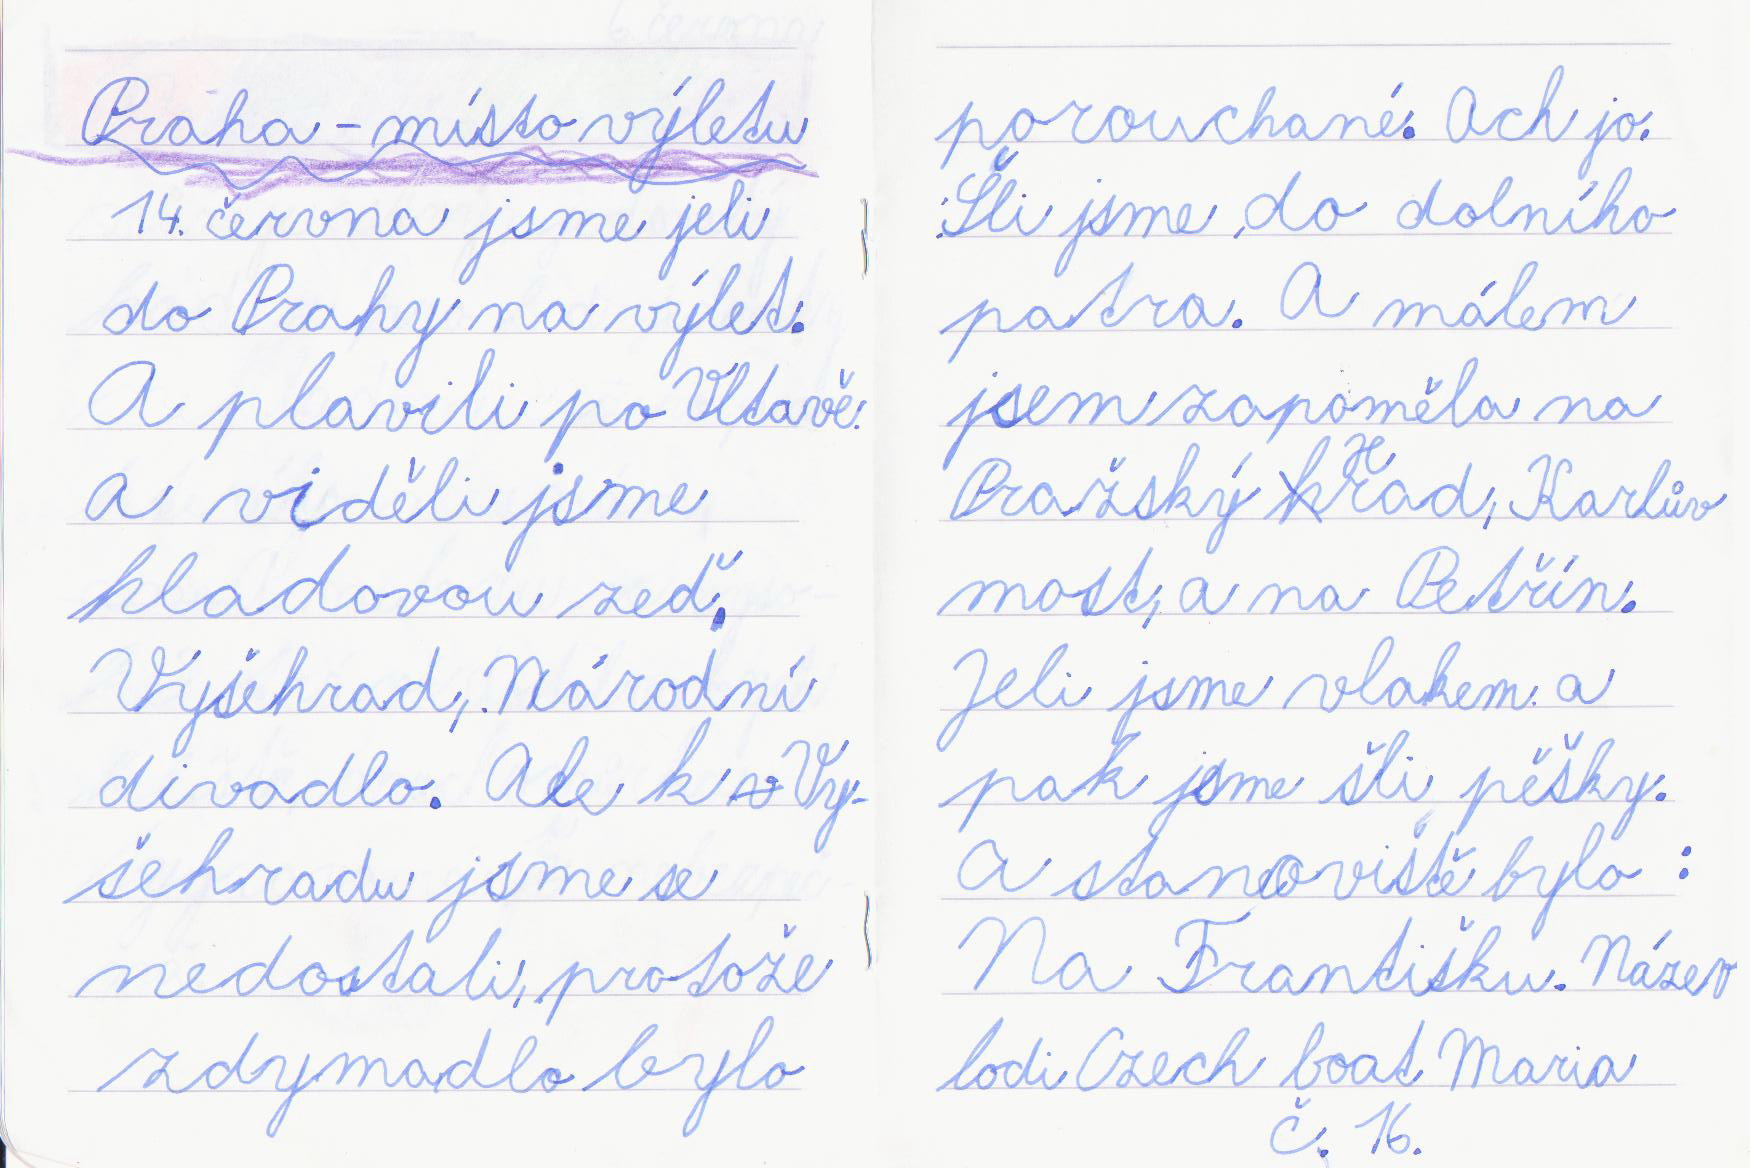 Praha - místo výletu
14. června jsme jeli
do Prahy na výlet.
A plavili po Vltavě.
a viděli jsme
hladovou zeď,
Vyšehrad, Národní
divadlo. Ale k Vy-
šehradu jsme se
nedostali, protože
zdymadlo bylo
porouchané. Ach jo.
Šli jsme do dolního
patra. A málem
jsem zapoměla na
Pražský Hrad, Karlův
most, a na Petřín.
Jeli jsme vlakem a
pak jsme šli pěšky.
A stanoviště bylo :
Na Františku. Název
lodi Czech boat Maria
č. 16.